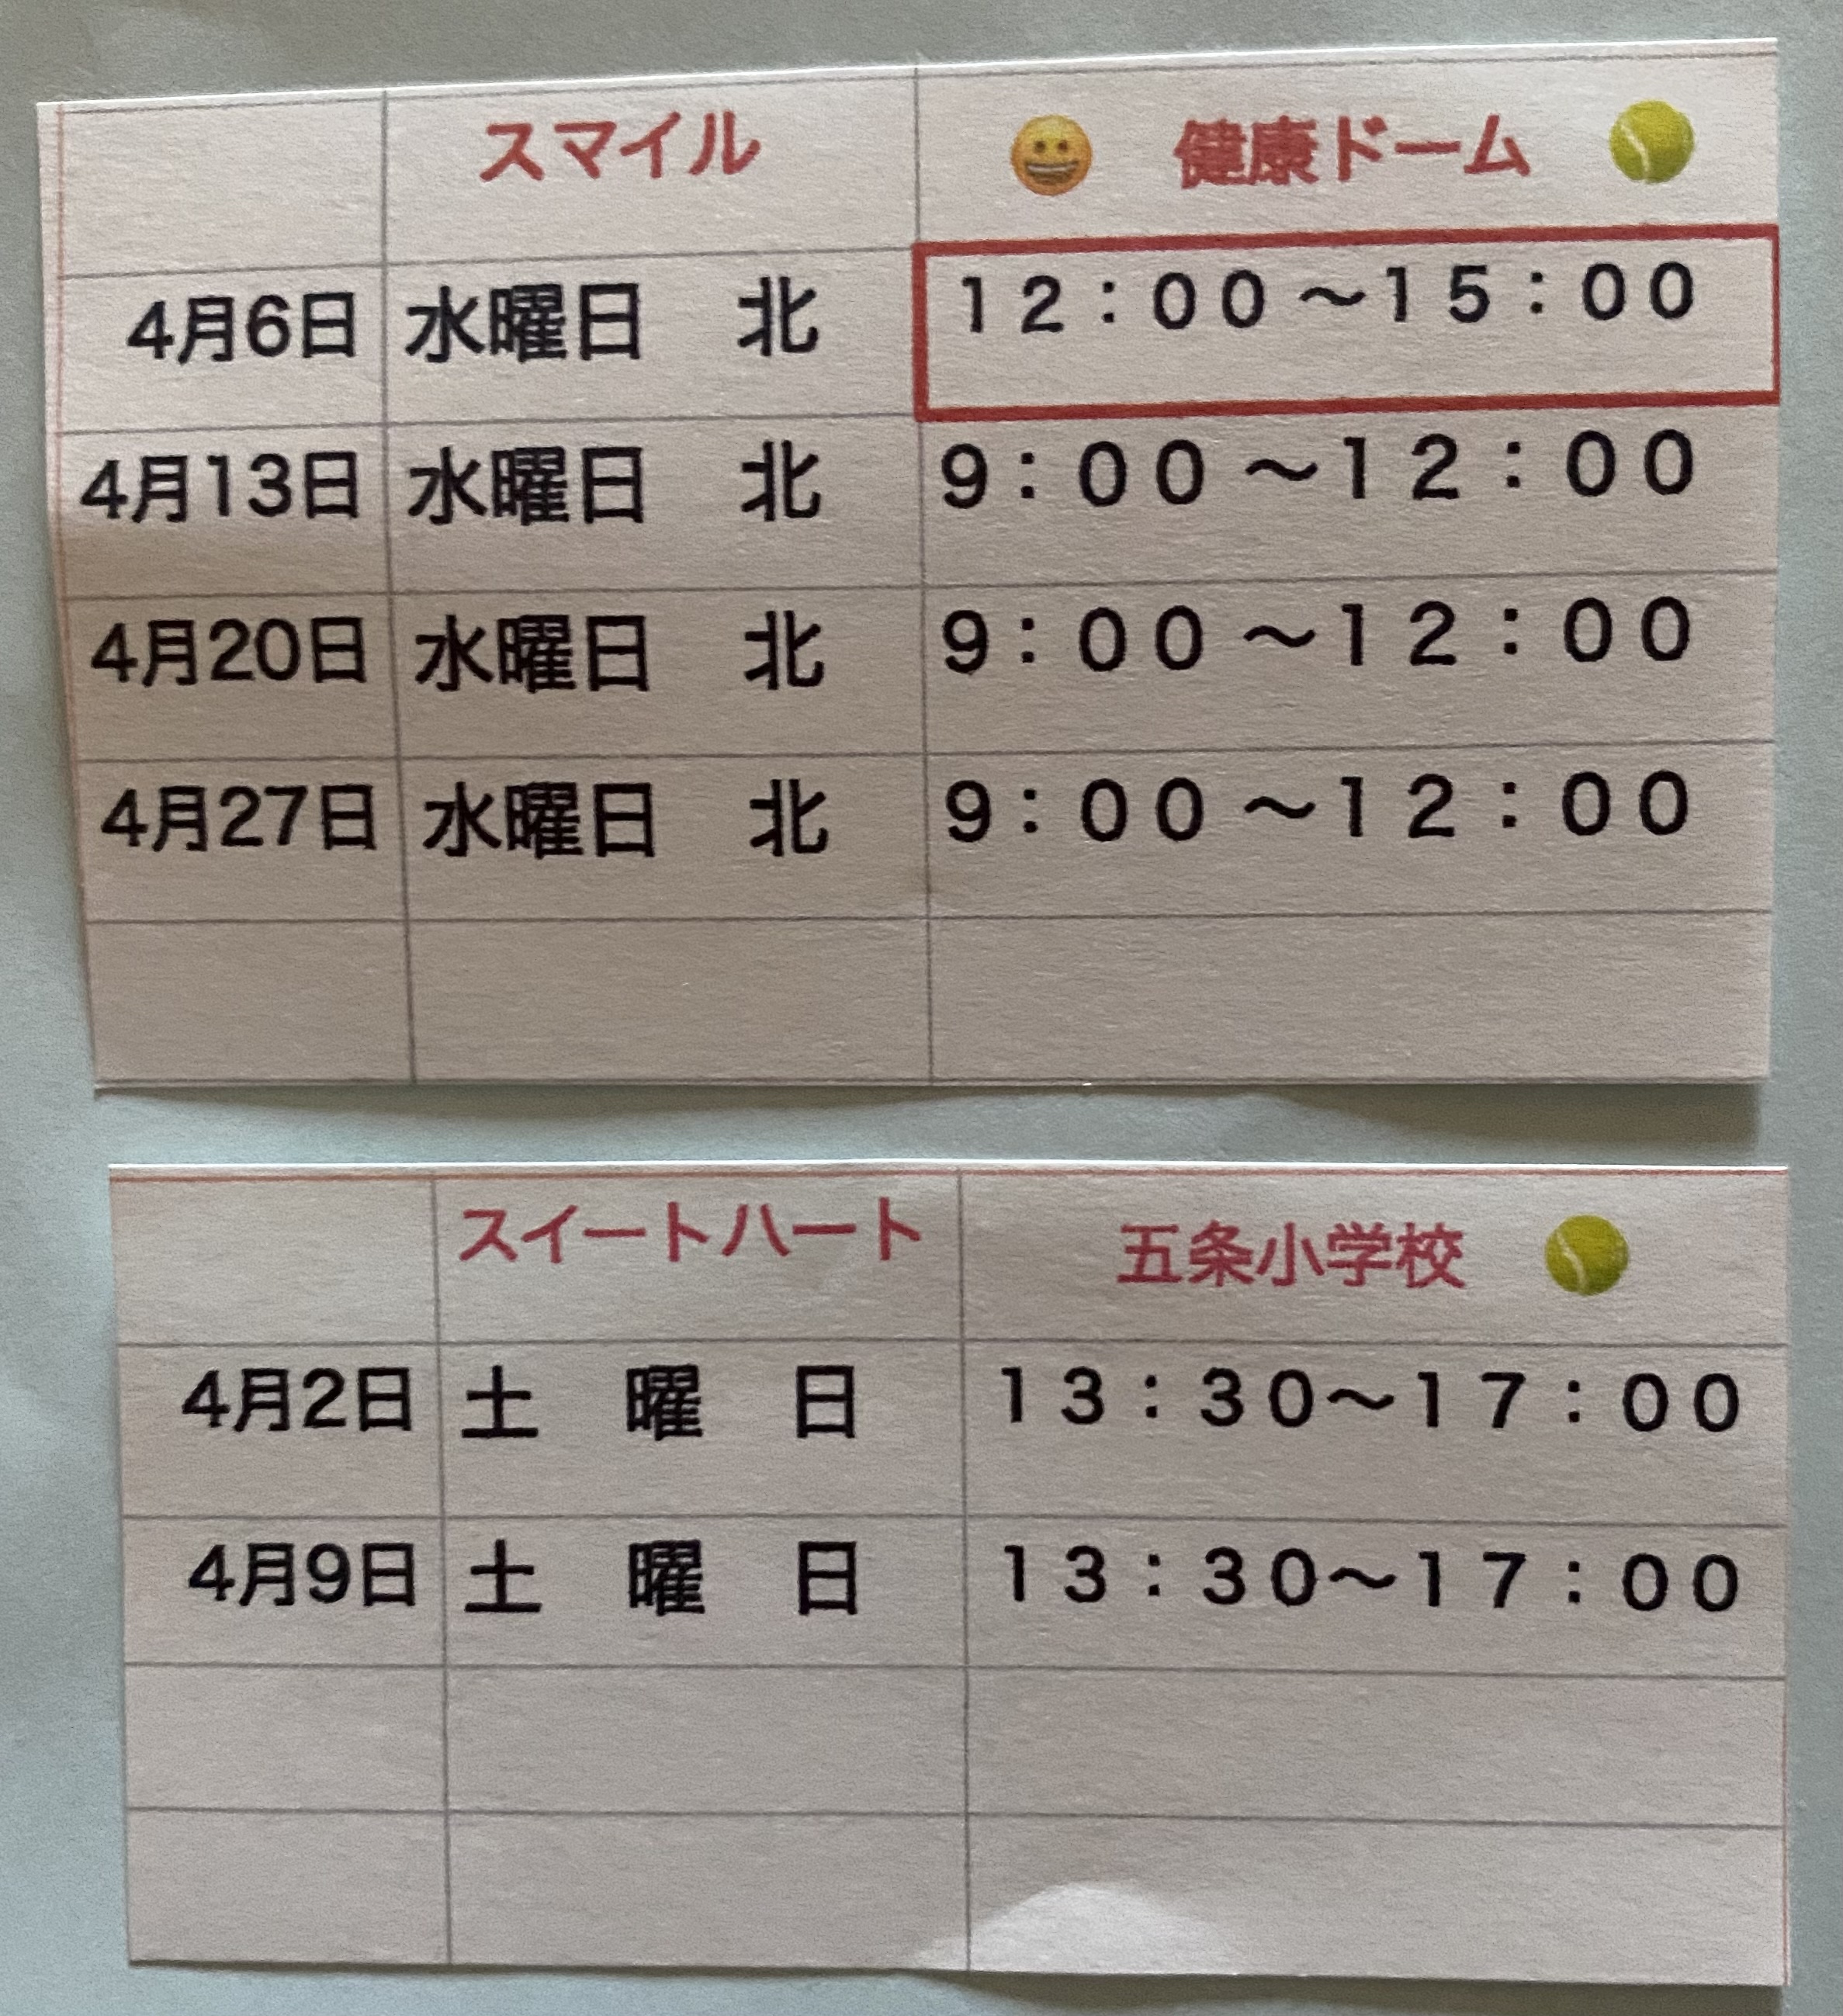 スマイル 😀 健康ドーム 🎾
4月6日 水曜日 北 12:00〜15:00
4月13日 水曜日 北 9:00〜12:00
4月20日 水曜日 北 9:00〜12:00
4月27日 水曜日 北 9:00〜12:00
スイートハート 五条小学校 🎾
4月2日 土 曜 日 13:30〜17:00
4月9日 土 曜 日 13:30〜17:00